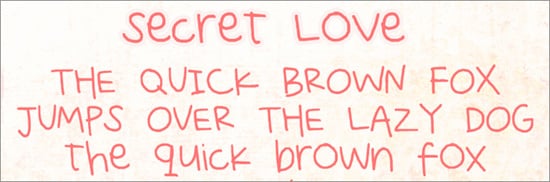 secret LOVE
THE QUICK BROWN FOX
JUMPS OVER THE LAZY DOG
the quick brown fox